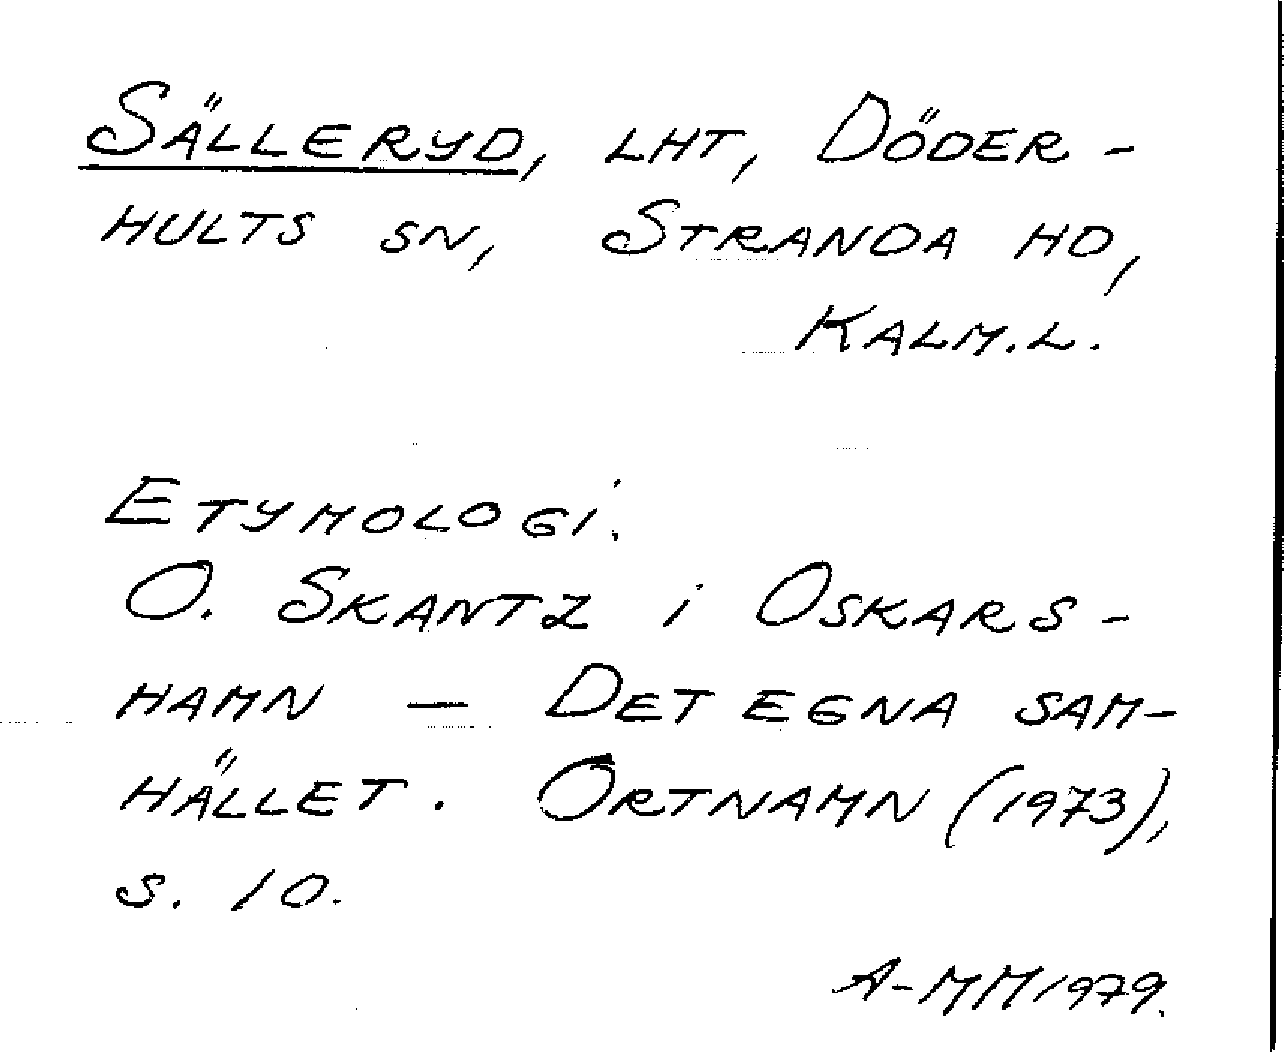 SÄLLERYD, LHT, DÖDER-
HULTS SN, STRANDA HD,
KALM.L.
ETYMOLOGI.
O. SKANTZ i OSKARS-
HAMN — DET EGNA SAM-
HÄLLET. ORTNAMN (1973),
S. 10.
A-MM 1979.